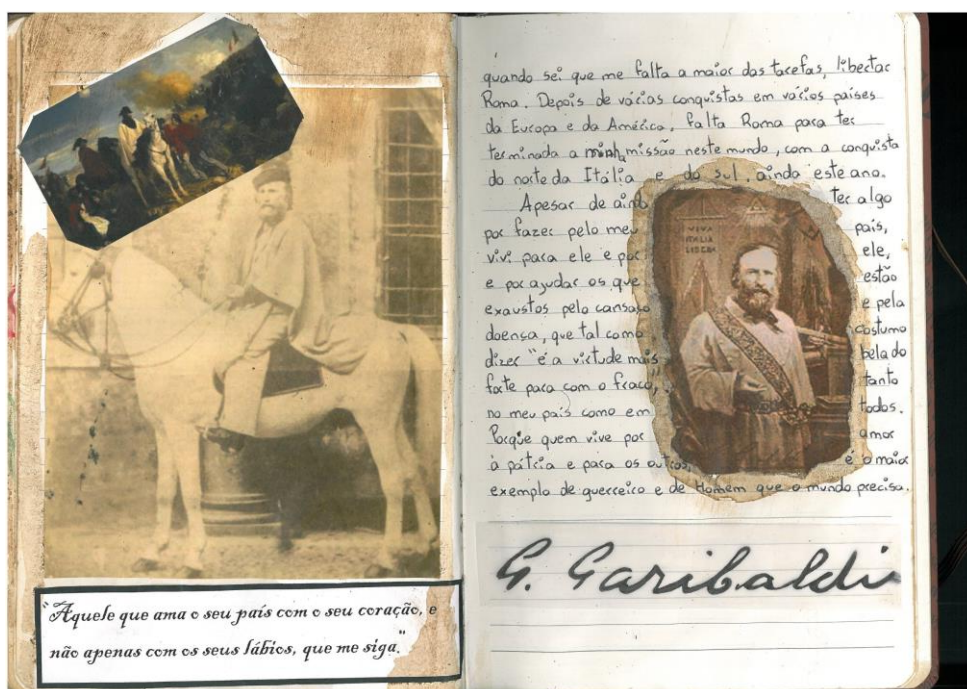 "Aquele que ama o seu país com o seu coração, e
não apenas com os seus lábios, que me siga."
quando sei que me falta a maior das tarefas, libertar
Roma. Depois de várias conquistas em vários países
da Europa e da América, falta Roma para ter
terminada a minha missão neste mundo, com a conquista
do norte da Itália e do sul, ainda este ano.
Apesar de aind ter algo
por fazer pelo meu país,
vivi para ele e por ele,
e por ajudar os que estão
exaustos pelo cansaço e pela
doença, que tal como costumo
dizer "é a virtude mais bela do
forte para com o fraco," tanto
no meu país como em todos.
Porque quem vive por amor
à pátria e para os outros, é o maior
exemplo de guerreiro e de Homem que o mundo precisa.
VIVA
ITALIA
G. Garibaldi